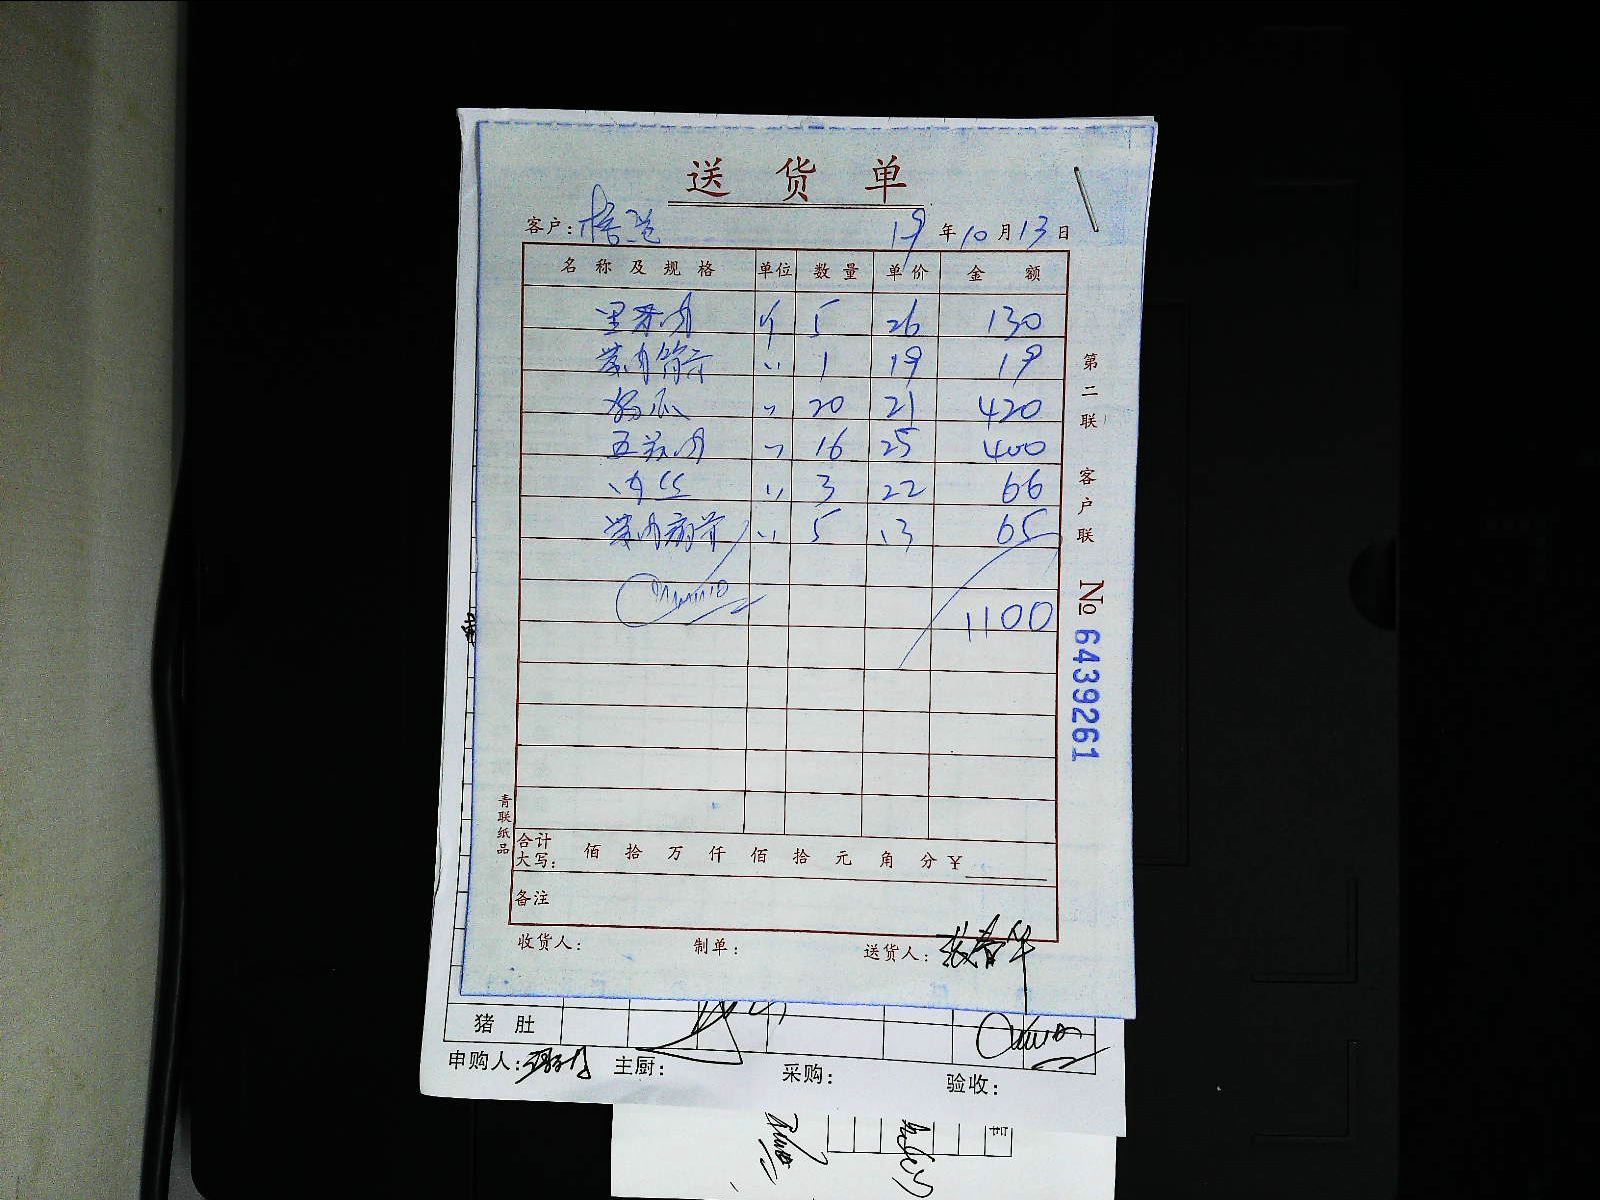 送货单
客户:
19年10月13日
名称及规格 单位 数量 单价 金额
里脊肉 斤 5 26 130
带肉筒骨 〃 1 19 19
〃 20 21 420
五花肉 〃 16 25 400
肉丝 〃 3 22 66
带肉 〃 5 13 65
1100
第二联 客户联
No 6439261
青联纸品
合计大写: 佰 拾 万 仟 佰 拾 元 角 分 ¥
备注
收货人: 制单: 送货人: 张春华
猪肚
申购人: 主厨: 采购: 验收: